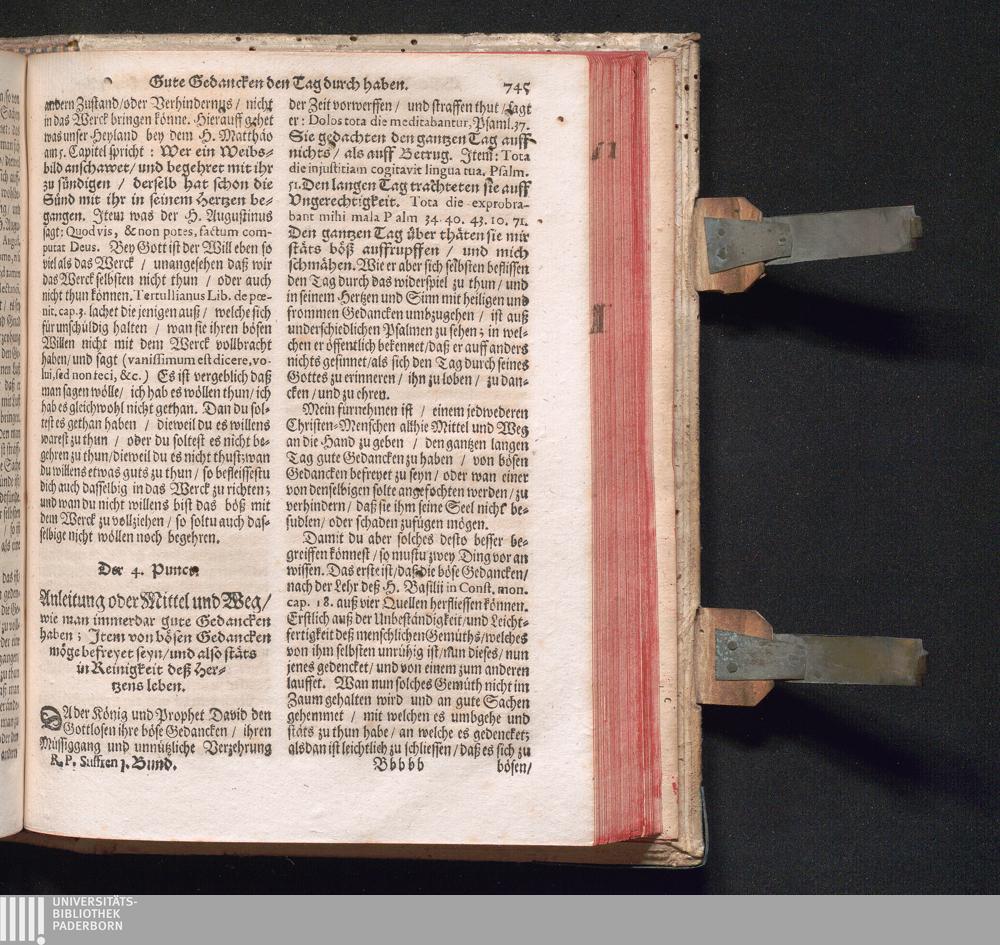 Gute Gedancken den Tag durch haben. 745
andern Zustand/oder Verhindernus / nicht
in das Werck bringen könne. Hierauff gehet
was unser Heyland bey dem H. Matthäo
am 5. Capitel spricht : Wer ein Weibs-
bild anschawet/ und begehret mit ihr
zu sündigen / derselb hat schon die
Sünd mit ihr in seinem Hertzen be-
gangen. Item was der H. Augustinus
sagt: Quod vis, & non potes, factum com-
putat Deus. Bey Gott ist der Will eben so
viel als das Werck / unangesehen daß wir
das Werck selbsten nicht thun / oder auch
nicht thun können. Tertullianus Lib. de pœ-
nit. cap. 3. lachet die jenigen auß / welche sich
für unschuldig halten / wan sie ihren bösen
Willen nicht mit dem Werck vollbracht
haben/ und sagt (vanissimum est dicere, vo-
lui, sed non feci, &c.) Es ist vergeblich daß
man sagen wölle/ ich hab es wöllen thun/ ich
hab es gleichwohl nicht gethan. Dan du sol-
test es gethan haben / dieweil du es willens
warest zu thun / oder du soltest es nicht be-
gehren zu thun/dieweil du es nicht thust:wan
du willens etwas guts zu thun / so befleissestu
dich auch dasselbig in das Werck zu richten;
und wan du nicht willens bist das böß mit
dem Werck zu vollziehen / so soltu auch das-
selbige nicht wöllen noch begehren.
Der 4. Punct.
Anleitung oder Mittel und Weg/
wie man immerdar gute Gedancken
haben ; Item von bösen Gedancken
möge befreyet seyn/ und also stäts
in Reinigkeit deß Her-
tzens leben.
DA der König und Prophet David den
Gottlosen ihre böse Gedancken / ihren
Müssiggang und unnützliche Verzehrung
R. P. Suffren 1. Bund.
der Zeit vorwerffen / und straffen thut / sagt
er : Dolos tota die meditabantur, Psaml. 37.
Sie gedachten den gantzen Tag auff
nichts / als auff Betrug. Item: Tota
die injustitiam cogitavit lingua tua. Psalm.
51. Den langen Tag trachteten sie auff
Ungerechtigkeit. Tota die exprobra-
bant mihi mala P alm 34. 40. 43. 10. 71.
Den gantzen Tag über thäten sie mir
stäts böß auffrupffen / und mich
schmähen. Wie er aber sich selbsten beflissen
den Tag durch das widerspiel zu thun / und
in seinem Hertzen und Sinn mit heiligen und
frommen Gedancken umbzugehen / ist auß
underschiedlichen Psalmen zu sehen; in wel-
chen er öffentlich bekennet/daß er auff anders
nichts gesinnet/als sich den Tag durch seines
Gottes zu erinneren / ihn zu loben / zu dan-
cken / und zu ehren.
Mein fürnehmen ist / einem jedwederen
Christen-Menschen allhie Mittel und Weg
an die Hand zu geben / den gantzen langen
Tag gute Gedancken zu haben / von bösen
Gedancken befreyet zu seyn / oder wan einer
von denselbigen solte angefochten werden / zu
verhindern / daß sie ihm seine Seel nicht be-
sudlen / oder schaden zufügen mögen.
Damit du aber solches desto besser be-
greiffen könnest / so mustu zwey Ding vor an
wissen. Das erste ist/daß die böse Gedancken/
nach der Lehr deß H. Basilii in Const. mon.
cap. 18. auß vier Quellen herfliessen können.
Erstlich auß der Unbeständigkeit/und Leicht-
fertigkeit deß menschlichen Gemüths/welches
von ihm selbsten unrühig ist/nun dieses / nun
jenes gedencket / und von einem zum anderen
lauffet. Wan nun solches Gemüth nicht im
Zaum gehalten wird und an gute Sachen
gehemmet / mit welchen es umbgehe und
stäts zu thun habe / an welche es gedencket;
alsdan ist leichtlich zu schliessen / daß es sich zu
Bbbbb bösen/
UNIVERSITÄTS-
BIBLIOTHEK
PADERBORN